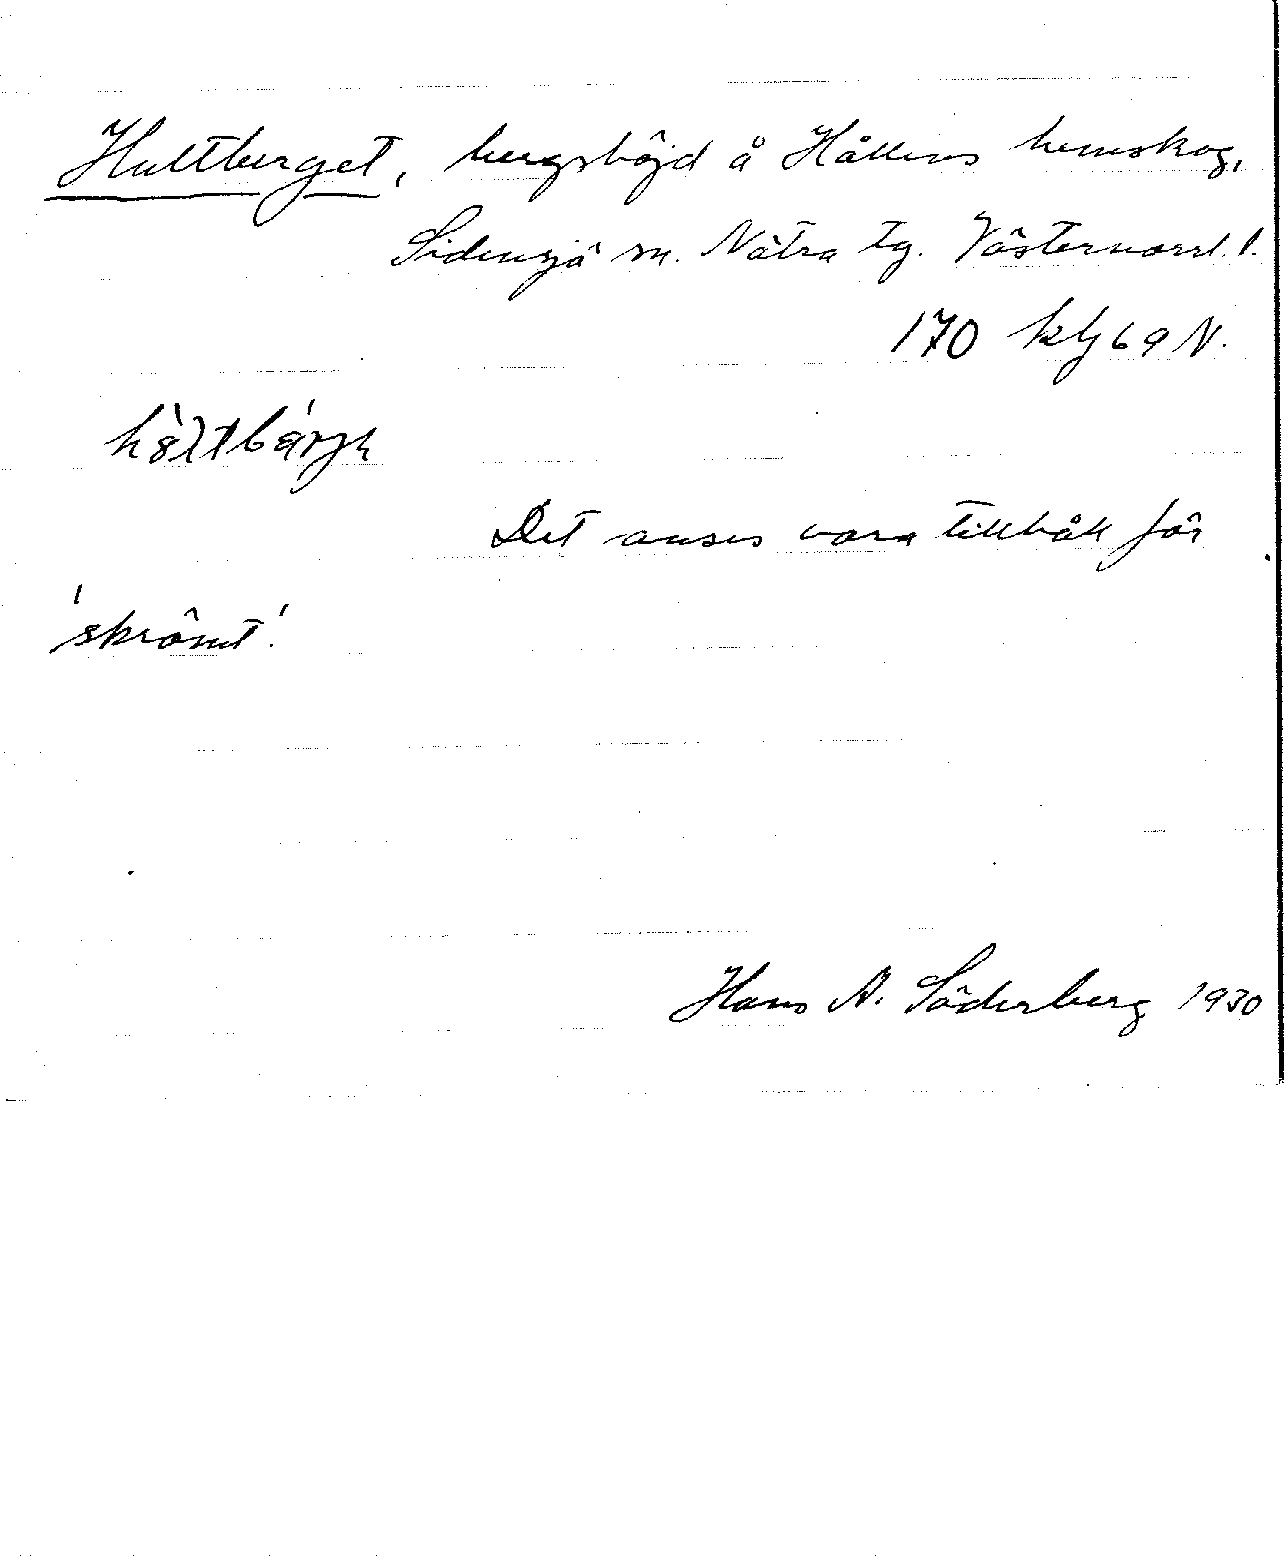 Hultberget, bergshöjd å Hållens hemskog,
Sidensjö sn. Nätra tg. Västernorrl. l.
170 kbj 69 N.
Det anses vara tillhåll för
'skrömt'.
Hans A. Söderberg 1930